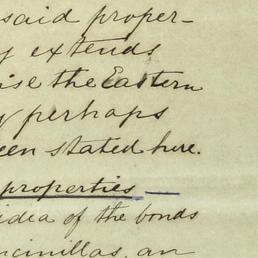 said proper-
y extends
ise the Eastern
y perhaps
een stated here.
properties —
idea of the bonds
ncinillas, an